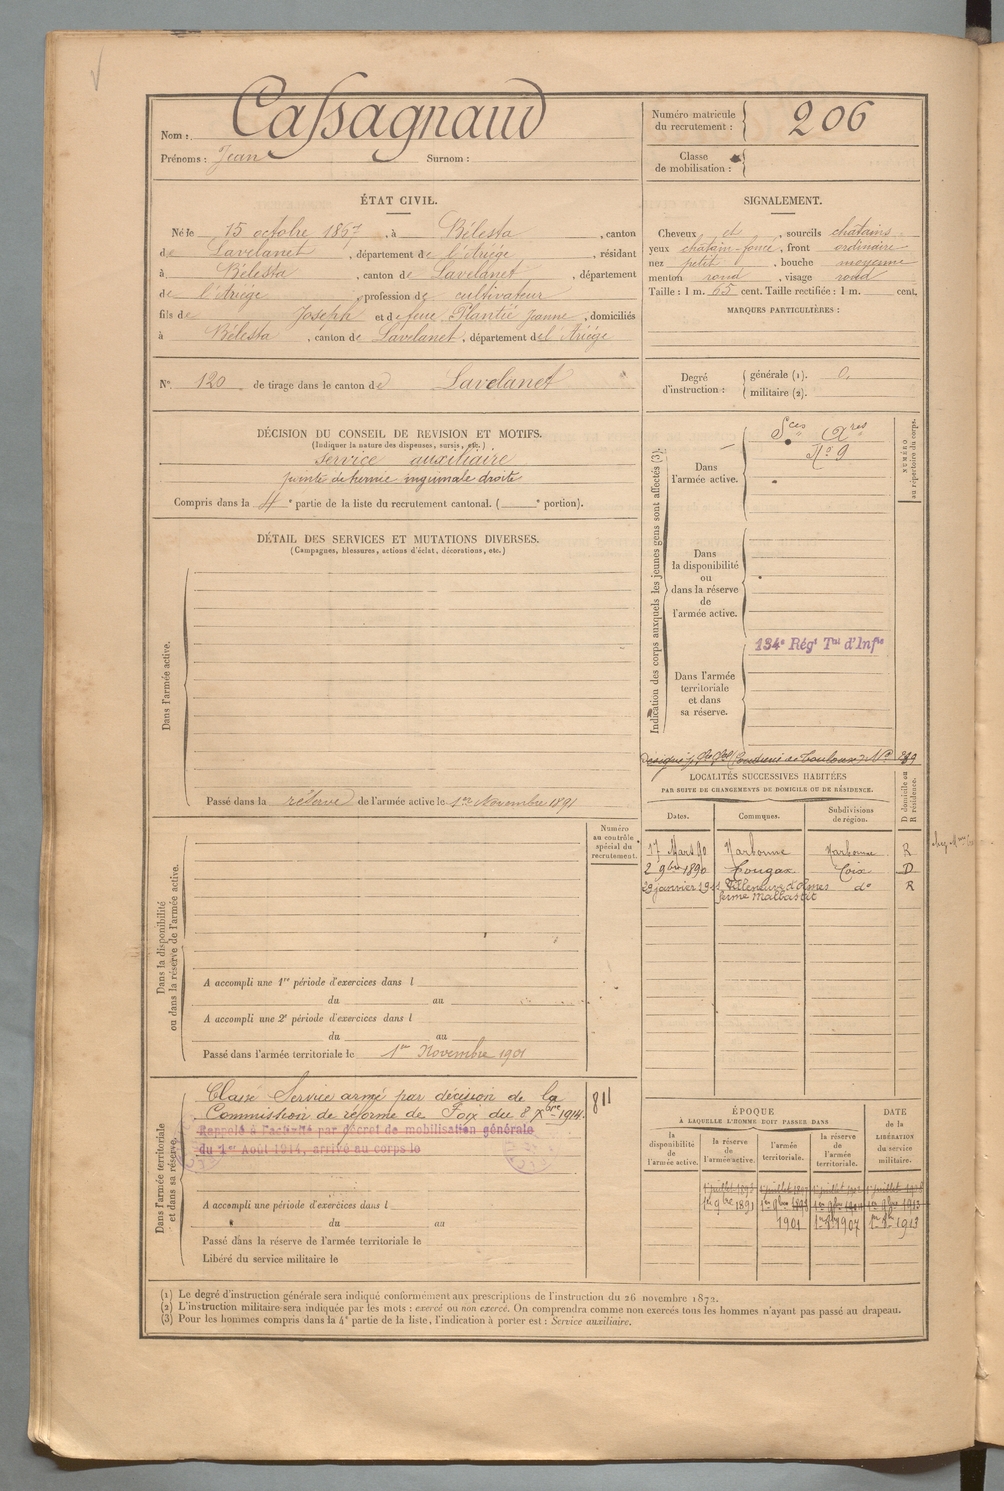 Nom : Cassagnaud
Prénoms : Jean Surnom :
Numéro matricule du recrutement : 206
Classe de mobilisation :
ÉTAT CIVIL.
Né le 15 octobre 1867, à Bélesta, canton
de Lavelanet, département de l'Ariége, résidant
à Bélesta, canton de Lavelanet, département
de l'Ariége, profession de cultivateur
fils de Joseph et de feue Plantié Jeanne, domiciliés
à Bélesta, canton de Lavelanet, département de l'Ariége
N° 120 de tirage dans le canton de Lavelanet
SIGNALEMENT.
Cheveux et, sourcils châtains
yeux châtain-foncé, front ordinaire
nez petit, bouche moyenne
menton rond, visage rond
Taille : 1 m. 65 cent. Taille rectifiée : 1 m. cent.
MARQUES PARTICULIÈRES :
Degré d'instruction : générale (1). 0.
militaire (2).
DÉCISION DU CONSEIL DE REVISION ET MOTIFS.
(Indiquer la nature des dispenses, sursis, etc.)
service auxiliaire
pointe de hernie inguinale droite
Compris dans la 4e partie de la liste du recrutement cantonal. ( e portion).
DÉTAIL DES SERVICES ET MUTATIONS DIVERSES.
(Campagnes, blessures, actions d'éclat, décorations, etc.)
Dans l'armée active.
Passé dans la réserve de l'armée active le 1er Novembre 1891
Numéro au contrôle spécial du recrutement.
Dans la disponibilité ou dans la réserve de l'armée active.
A accompli une 1re période d'exercices dans l
du au
A accompli une 2e période d'exercices dans l
du au
Passé dans l'armée territoriale le 1er Novembre 1901
Dans l'armée territoriale et dans sa réserve.
Classé Service armé par décision de la
Commission de réforme de Foix du 8 Xbre 1914.
811
Rappelé à l'activité par décret de mobilisation générale
du 1er Août 1914, arrivé au corps le
A accompli une période d'exercices dans l
du au
Passé dans la réserve de l'armée territoriale le
Libéré du service militaire le
Indication des corps auxquels les jeunes gens sont affectés (3).
NUMÉRO au répertoire du corps.
Dans l'armée active.
Sces Ares
No 9
Dans la disponibilité ou dans la réserve de l'armée active.
Dans l'armée territoriale et dans sa réserve.
134e Régt Tal d'Infie
LOCALITÉS SUCCESSIVES HABITÉES
PAR SUITE DE CHANGEMENTS DE DOMICILE OU DE RÉSIDENCE.
D domicile ou R résidence.
Dates. Communes. Subdivisions de région.
17 Mars 90 Narbonne Narbonne R
2 9bre 1890 Fougax Foix D
29 janvier 1911 Villeneuve d'Olmes do R
ferme Malbastit
ÉPOQUE
À LAQUELLE L'HOMME DOIT PASSER DANS
DATE DE LA LIBÉRATION du service militaire.
la disponibilité de l'armée active.
la réserve de l'armée active.
l'armée territoriale.
la réserve de l'armée territoriale.
1er 9bre 1891 1er 9bre 1898
1901 1er 9bre 1907 1er 9bre 1913
(1) Le degré d'instruction générale sera indiqué conformément aux prescriptions de l'instruction du 26 novembre 1872.
(2) L'instruction militaire sera indiquée par les mots : exercé ou non exercé. On comprendra comme non exercés tous les hommes n'ayant pas passé au drapeau.
(3) Pour les hommes compris dans la 4e partie de la liste, l'indication à porter est : Service auxiliaire.